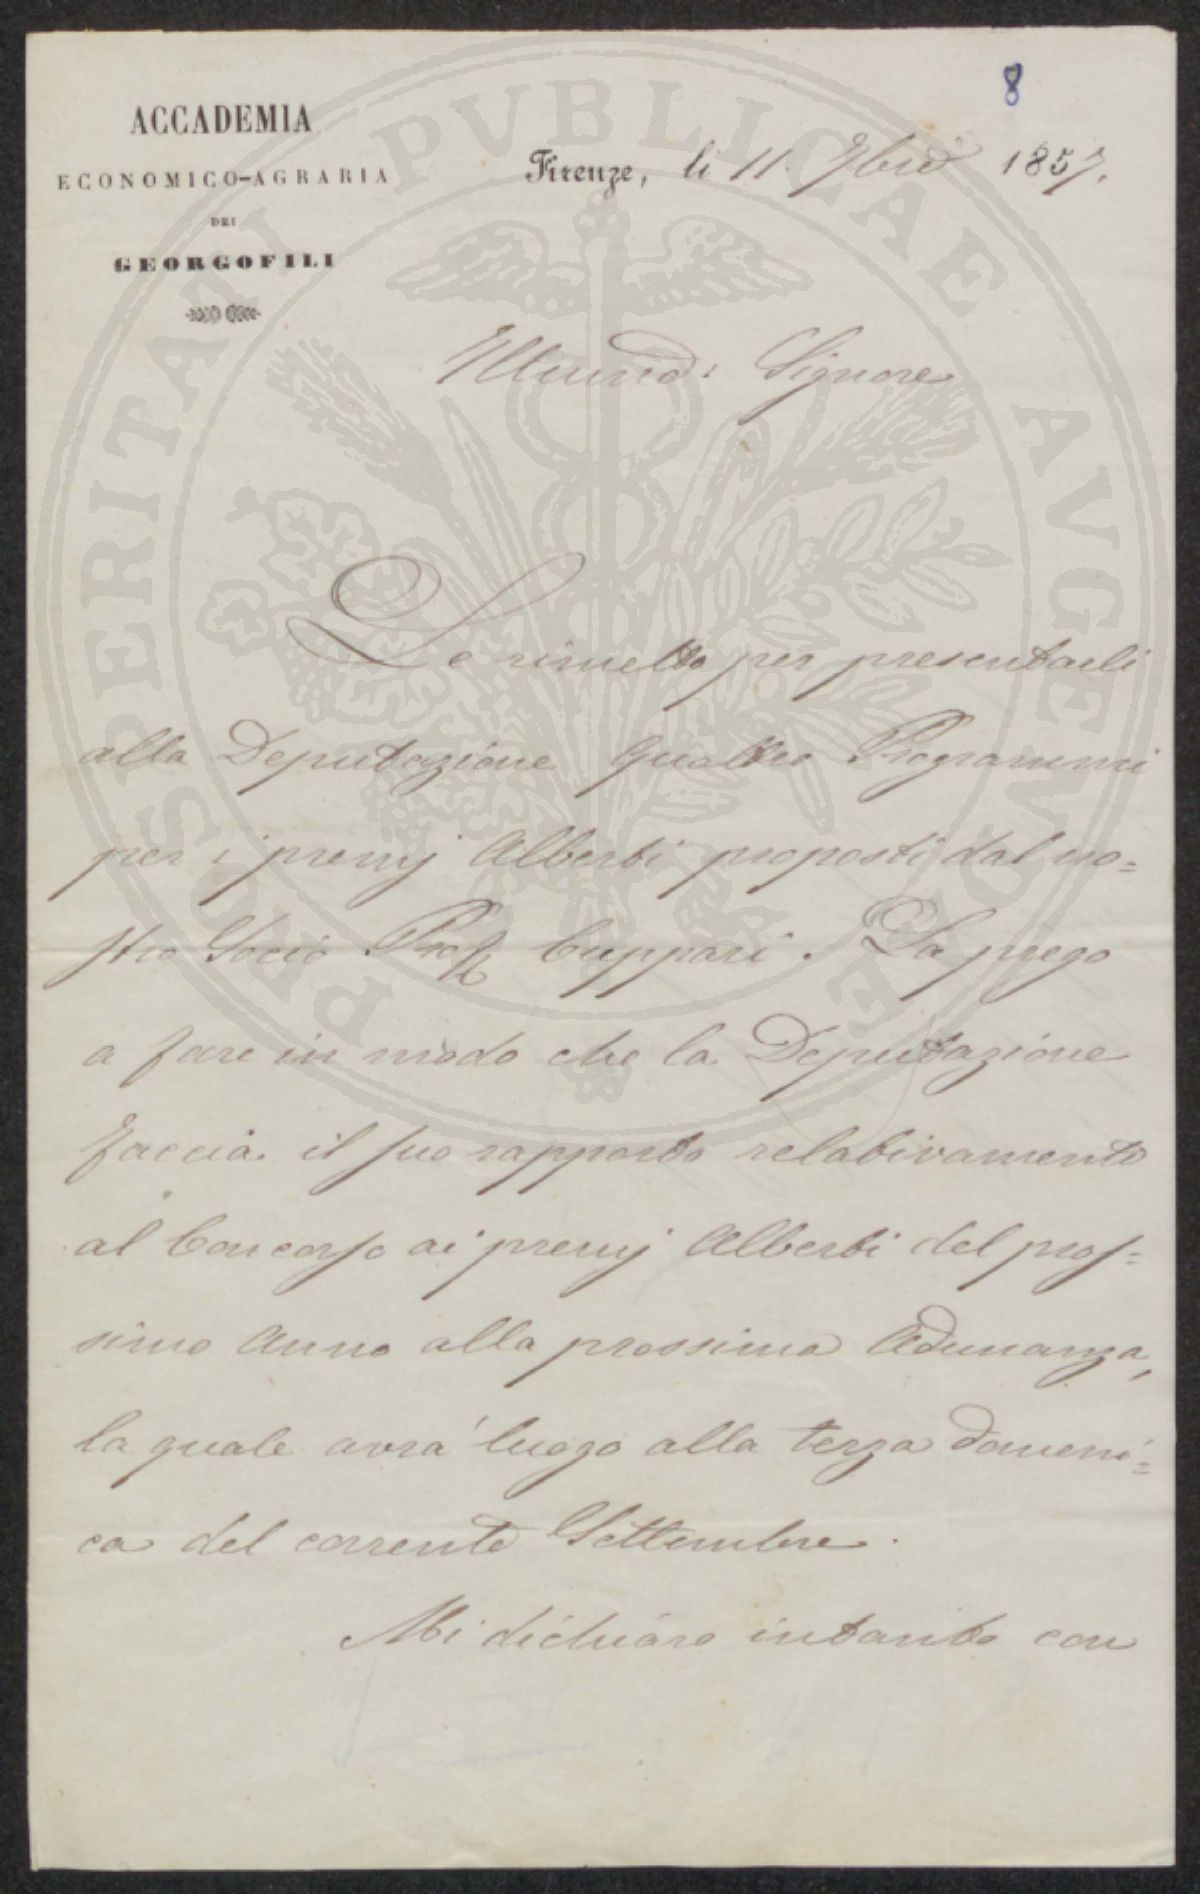 8
ACCADEMIA
ECONOMICO-AGRARIA
DEI
GEORGOFILI
Firenze, li 11. 7bre 1857.
Illmo: Signore
Le rimetto per presentarli
alla Deputazione quattro Programmi
per i premj Alberti proposti dal no=
stro Socio Prof. Cuppari. La prego
a fare in modo che la Deputazione
faccia il suo rapporto relativamente
al Concorso ai premj Alberti del pros=
simo Anno alla prossima Adunanza,
la quale avrà luogo alla terza domeni=
ca del corrente Settembre.
Mi dichiaro intanto con
PROSPERITATI PVBLICAE AVGENDAE